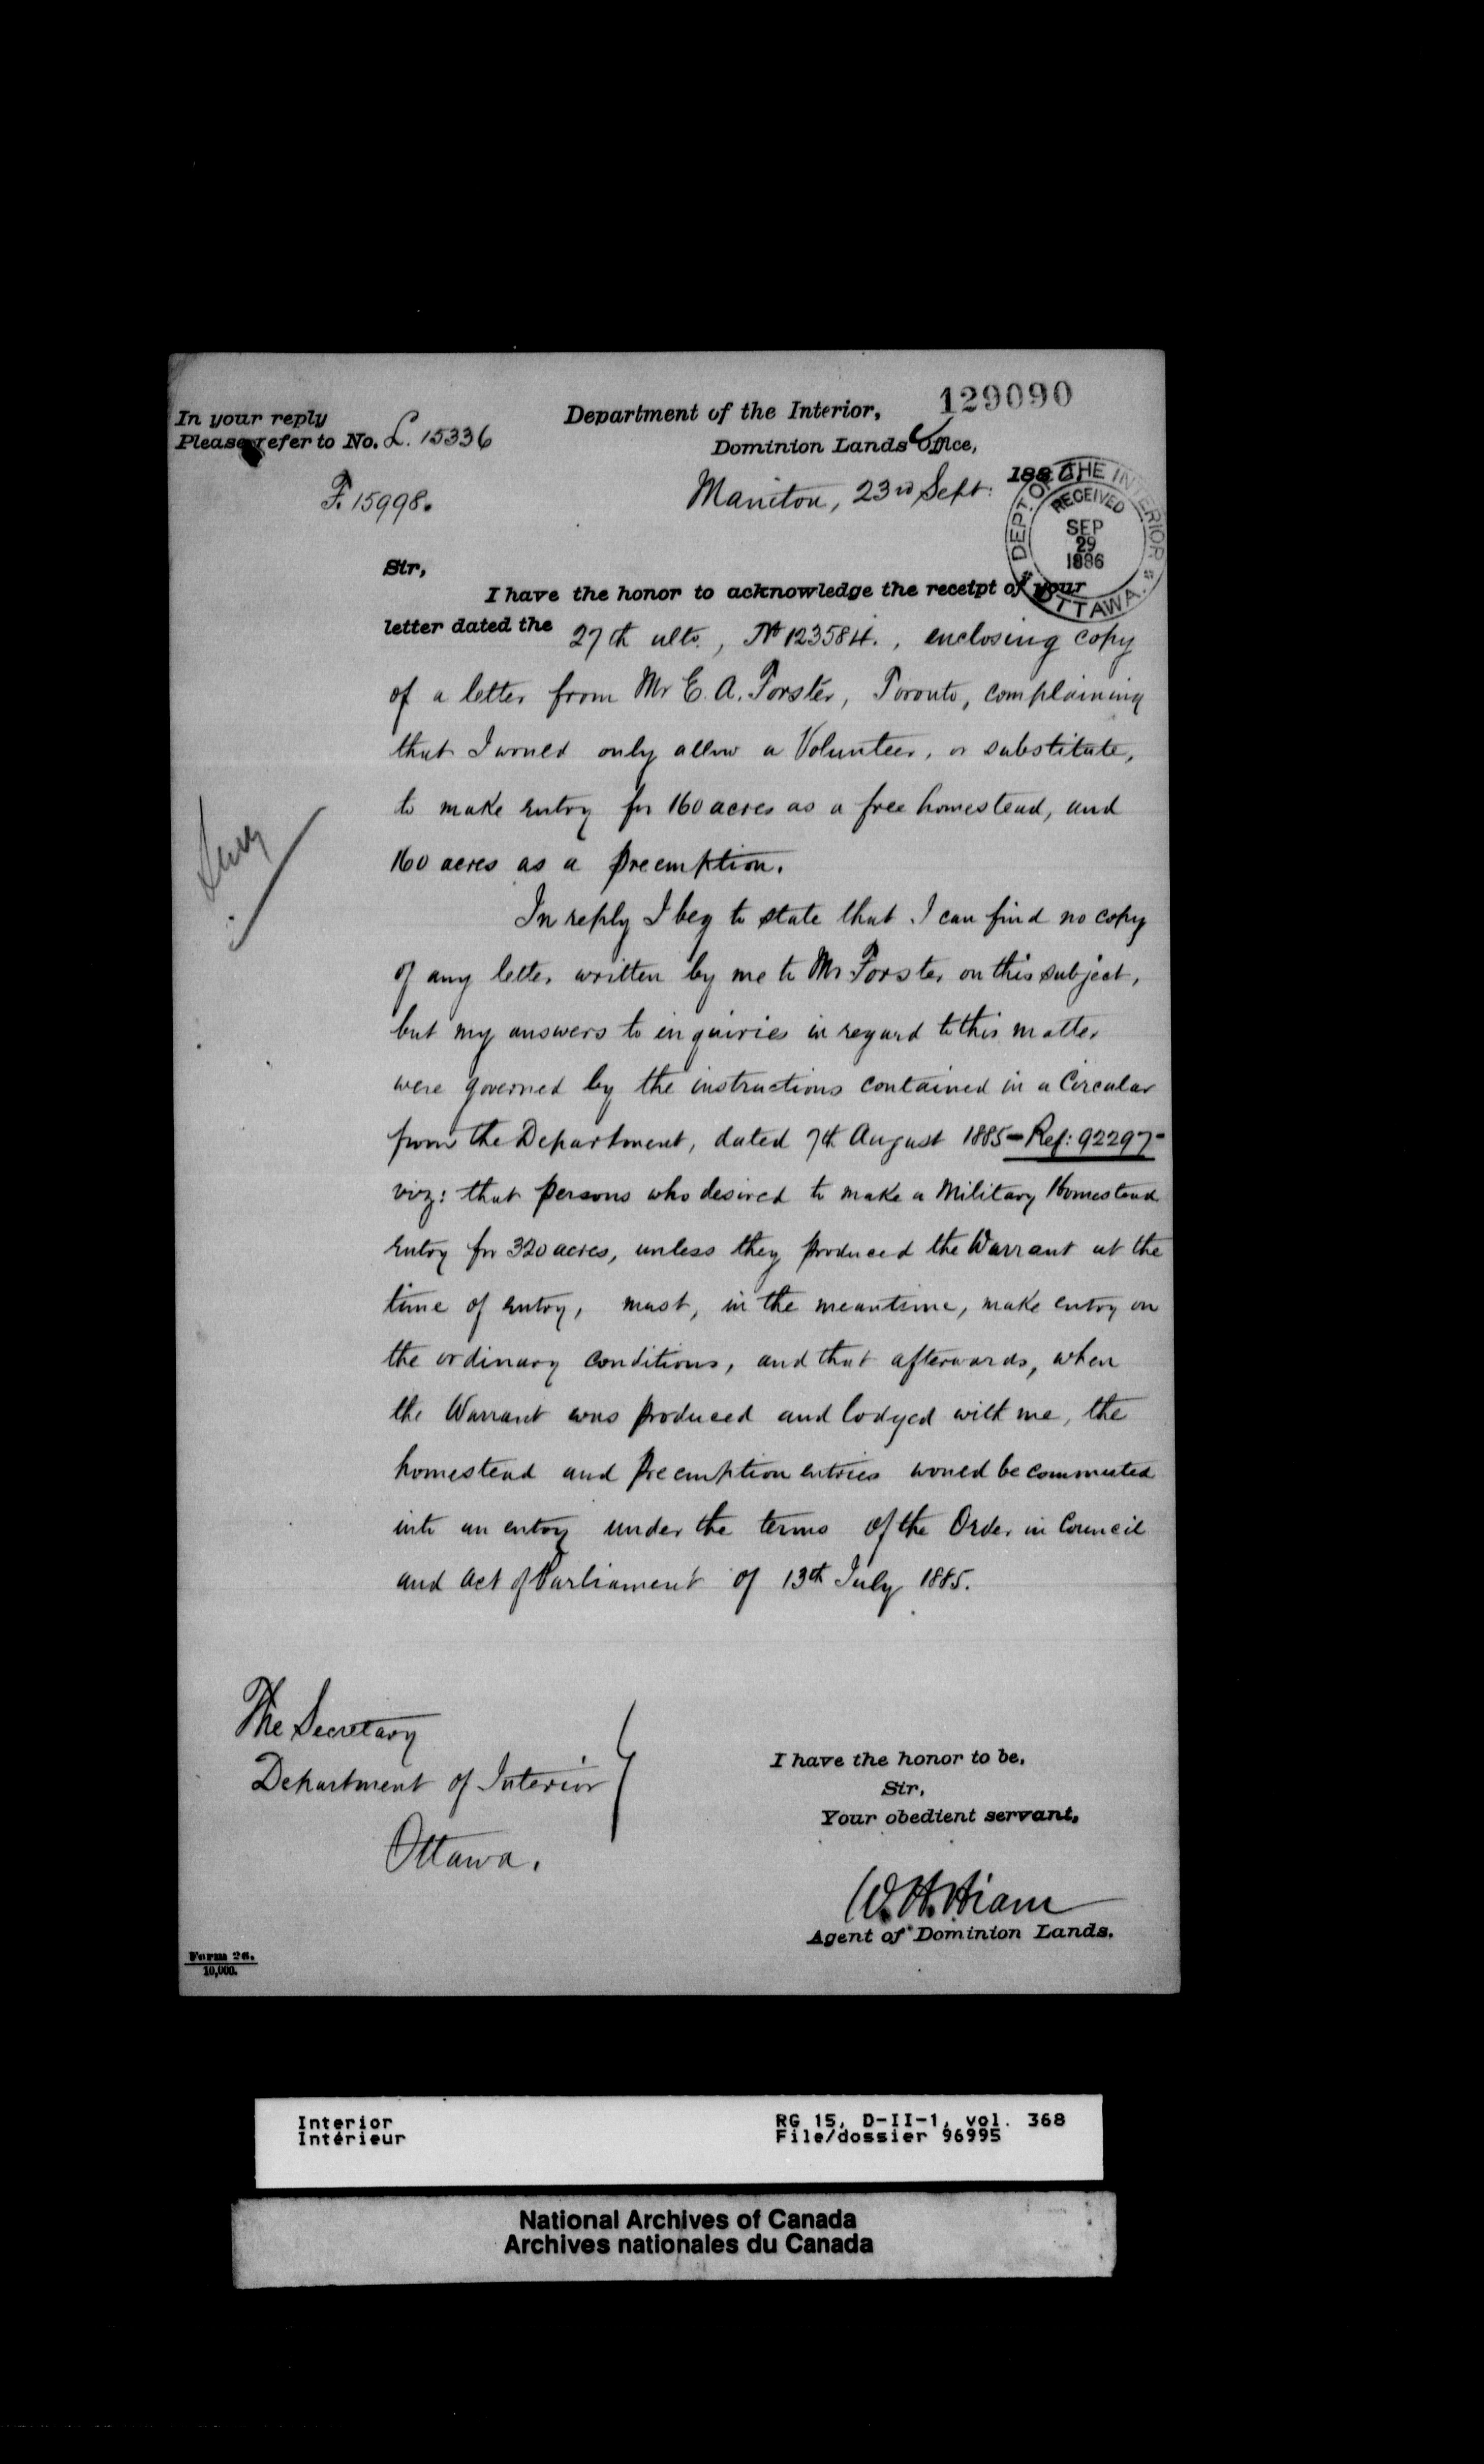 129090
In your reply
Please refer to No. L. 15336
F. 15998.
Department of the Interior,
Dominion Lands Office,
Manitou, 23rd Sept: 1886
DEPT. OF THE INTERIOR
RECEIVED
SEP
29
1886
OTTAWA.
Sir,
I have the honor to acknowledge the receipt of your
letter dated the 27th ulto., No 123584., enclosing copy
of a letter from Mr E. A. Forster, Toronto, complaining
that I would only allow a Volunteer, or substitute,
to make entry for 160 acres as a free homestead, and
160 acres as a preemption.
In reply I beg to state that I can find no copy
of any letter written by me to Mr Forster on this subject,
but my answers to inquiries in regard to this matter
were governed by the instructions contained in a Circular
from the Department, dated 7th August 1885 - Ref: 92297 -
viz: that persons who desired to make a Military Homestead
entry for 320 acres, unless they produced the Warrant at the
time of entry, must, in the meantime, make entry on
the ordinary conditions, and that afterwards, when
the Warrant was produced and lodged with me, the
homestead and preemption entries would be commuted
into an entry under the terms of the Order in Council
and Act of Parliament of 13th July 1885.
The Secretary
Department of Interior
Ottawa.
I have the honor to be,
Sir,
Your obedient servant,
W. H. Hiam
Agent of Dominion Lands.
Form 26.
10,000.
Interior
Intérieur
RG 15, D-II-1, vol. 368
File/dossier 96995
National Archives of Canada
Archives nationales du Canada